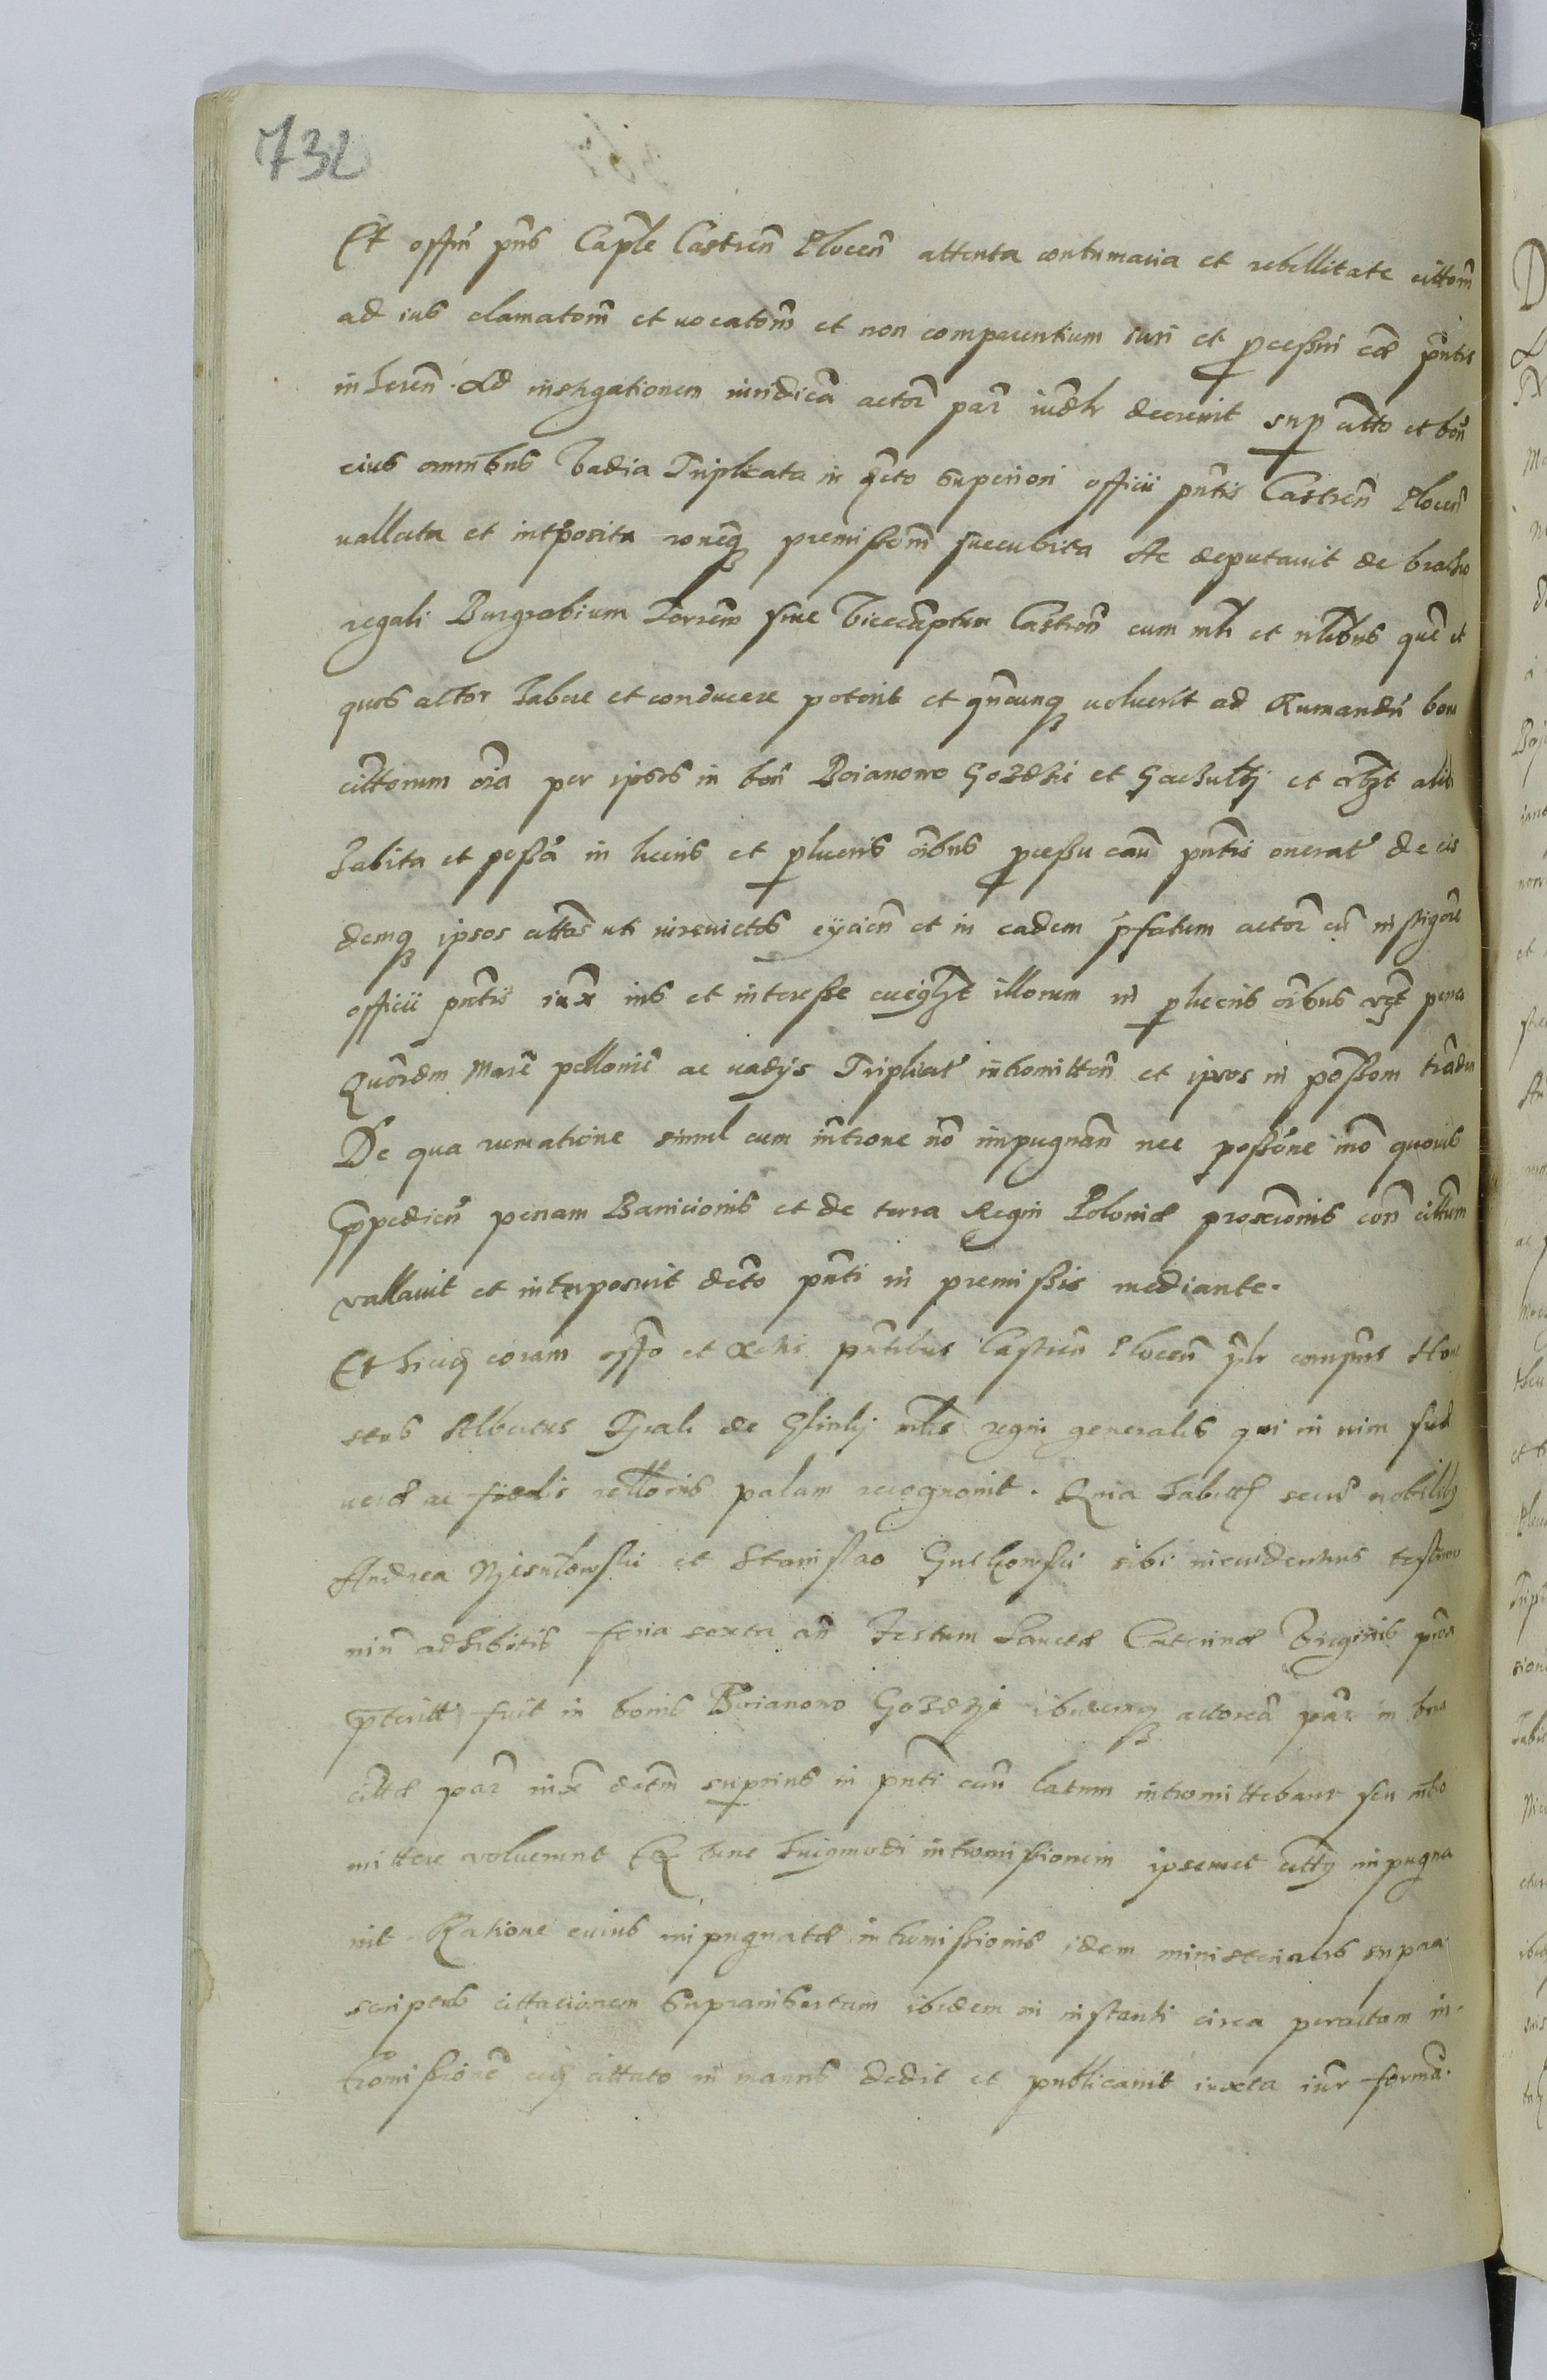 732
Et offm pns Caple Castren Plocen attenta contumacia et rebellitate cittorm
ad ius clamatorm et vocatorm et non comparentium iuri et pcessui cae pntis
inheren. Ad instigationem iuridica actor par iudlr decrevit sup citto et bon
eius omnibus Vadia Triplicata in dcto superiori officii pntis Castren Plocen
vallata et intposita roneq premissorm succubita Ac deputavit de brachio
regali Burgrabium Terren sive Vicecaptum Castren cum mli et nlibus que et
quos actor habere et conducere poterit et qncunq voluerit ad Rumandu bona
cittorum oia per ipsos in bon Boianowo Gozdzie et et vbzt alia
habita et possa in lucris et plucris oibus pcessu cau pntis onerat de eis
demq ipsos cittos uti iurevictos eycien et in eadem pfatum actor cu instigore
officii pntis iux ius et interesse cuiqlzt illorum in plucris oibus vzt pena
Quordm Marc pellonie ac vadys Triplicat intromitten et ipsos in possom traden
De qua rumatione simul cum introne no impugnan nec possone imo quovis
ppedien penam Banicionis et de terra Regni Poloniae proscionis con cittum
vallavit et interposuit dcto pnti in premissis mediante.
Et hicq coram offo et Actis pntibus Castren Plocen plr comprns Hone
stus Albertus de Glinky mlis regni generalis qui in vim suae
verae ac fidelis rellonis palam recognovit. Quia habitis secu nobilibq
Andrea et Stanislao Gutkowski sibi in evidentius testimo
niu adhibitis feria sexta an Festum Sanctae Caterinae Virginis pxa
pteritt fuit in bonis Boianowo Gozdzie ibidemq actorea par in bna
cittae par iux dctm superius in pnti cau latum intromittebant seu intro
mittere voluerunt Ex tunc huiqmodi intromissionem ipsemet cittq impugna
vit. Ratione cuius impugnatae intromissionis idem ministerialis supra
scriptus cittacionem suprainsertam ibidem in instanti circa peractam in-
tromissione eiq cittato in manus dedit et publicavit iuxta iur forma.